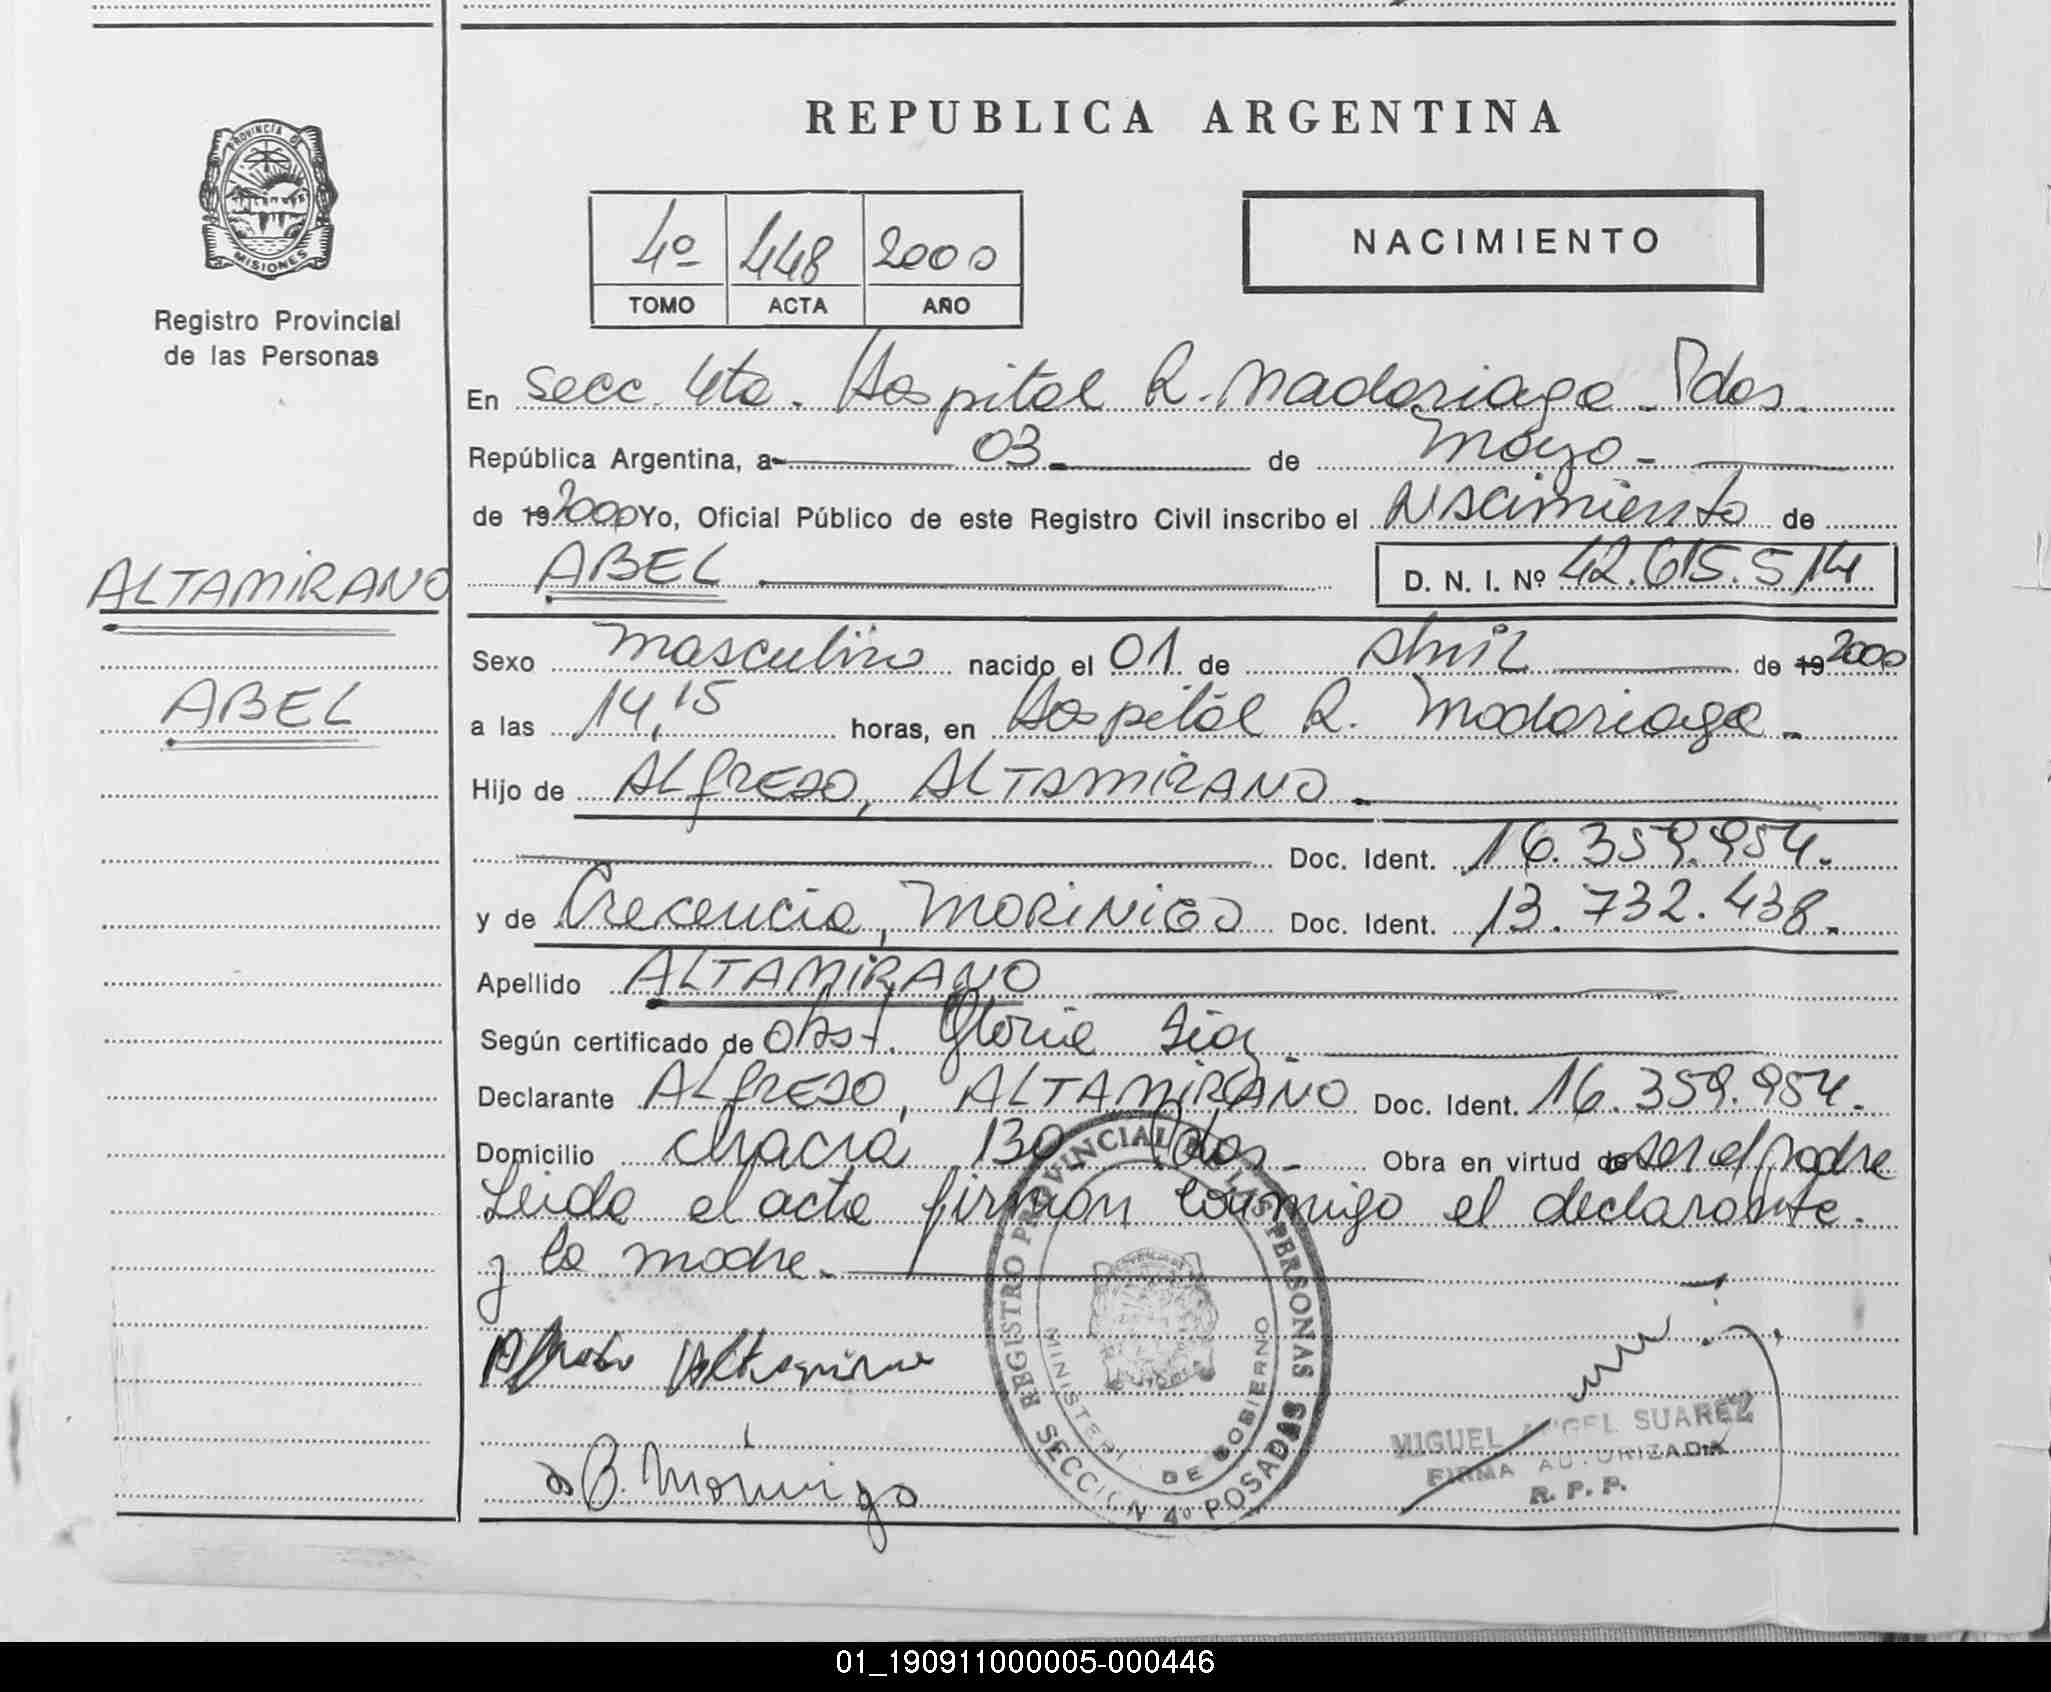 REPUBLICA ARGENTINA
PROVINCIA DE
MISIONES
Registro Provincial
de las Personas
4º 448 2000
TOMO ACTA AÑO
NACIMIENTO
En Secc. 4ta. Hospital R. Madariaga - Pdas.
República Argentina, a 03 de Mayo -
de 192000 Yo, Oficial Público de este Registro Civil inscribo el Nacimiento de
ALTAMIRANO
ABEL D. N. I. Nº 42.615.514
Sexo Masculino nacido el 01 de Abril de 19 2000
ABEL
a las 14,15 horas, en Hospital R. Madariaga -
Hijo de ALfREDO, ALTAMIRANO
Doc. Ident. 16.359.954.
y de Crecencia, MORINIGO Doc. Ident. 13.732.438.
Apellido ALTAMIRANO
Según certificado de Obst. Gloria
Declarante ALfREDO, ALTAMIRANO Doc. Ident. 16.359.954.
Domicilio chacra 130 Pdas - Obra en virtud de ser el padre
Leida el acta firman conmigo el declarante.
y la madre.
Alfredo Altamirano
B. Morinigo
REGISTRO PROVINCIAL DE LAS PERSONAS
MINISTERIO DE GOBIERNO
SECCION 4º POSADAS
MIGUEL ANGEL SUAREZ
FIRMA AUTORIZADA
R. P. P.
01_190911000005-000446